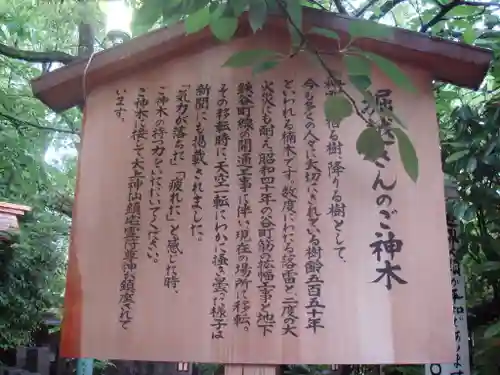 堀越さんのご神木
○○様の宿る樹 降りる樹として、
今も多くの人々に大切にされている樹齢五百五十年
といわれる楠木です。数度にわたる落雷と二度の大
火災にも耐え、昭和四十年の谷町筋の拡幅工事と地下
鉄谷町線の開通工事に伴い現在の場所に移転。
その移転時に天空一転にわかに掻き雲った様子は
新聞にも掲載されました。
「気力が落ちた」「疲れた」と感じた時、
ご神木の持つ力をいただいてください。
ご神木と接して大上神仙鎮宅霊符尊神が鎮座されて
います。